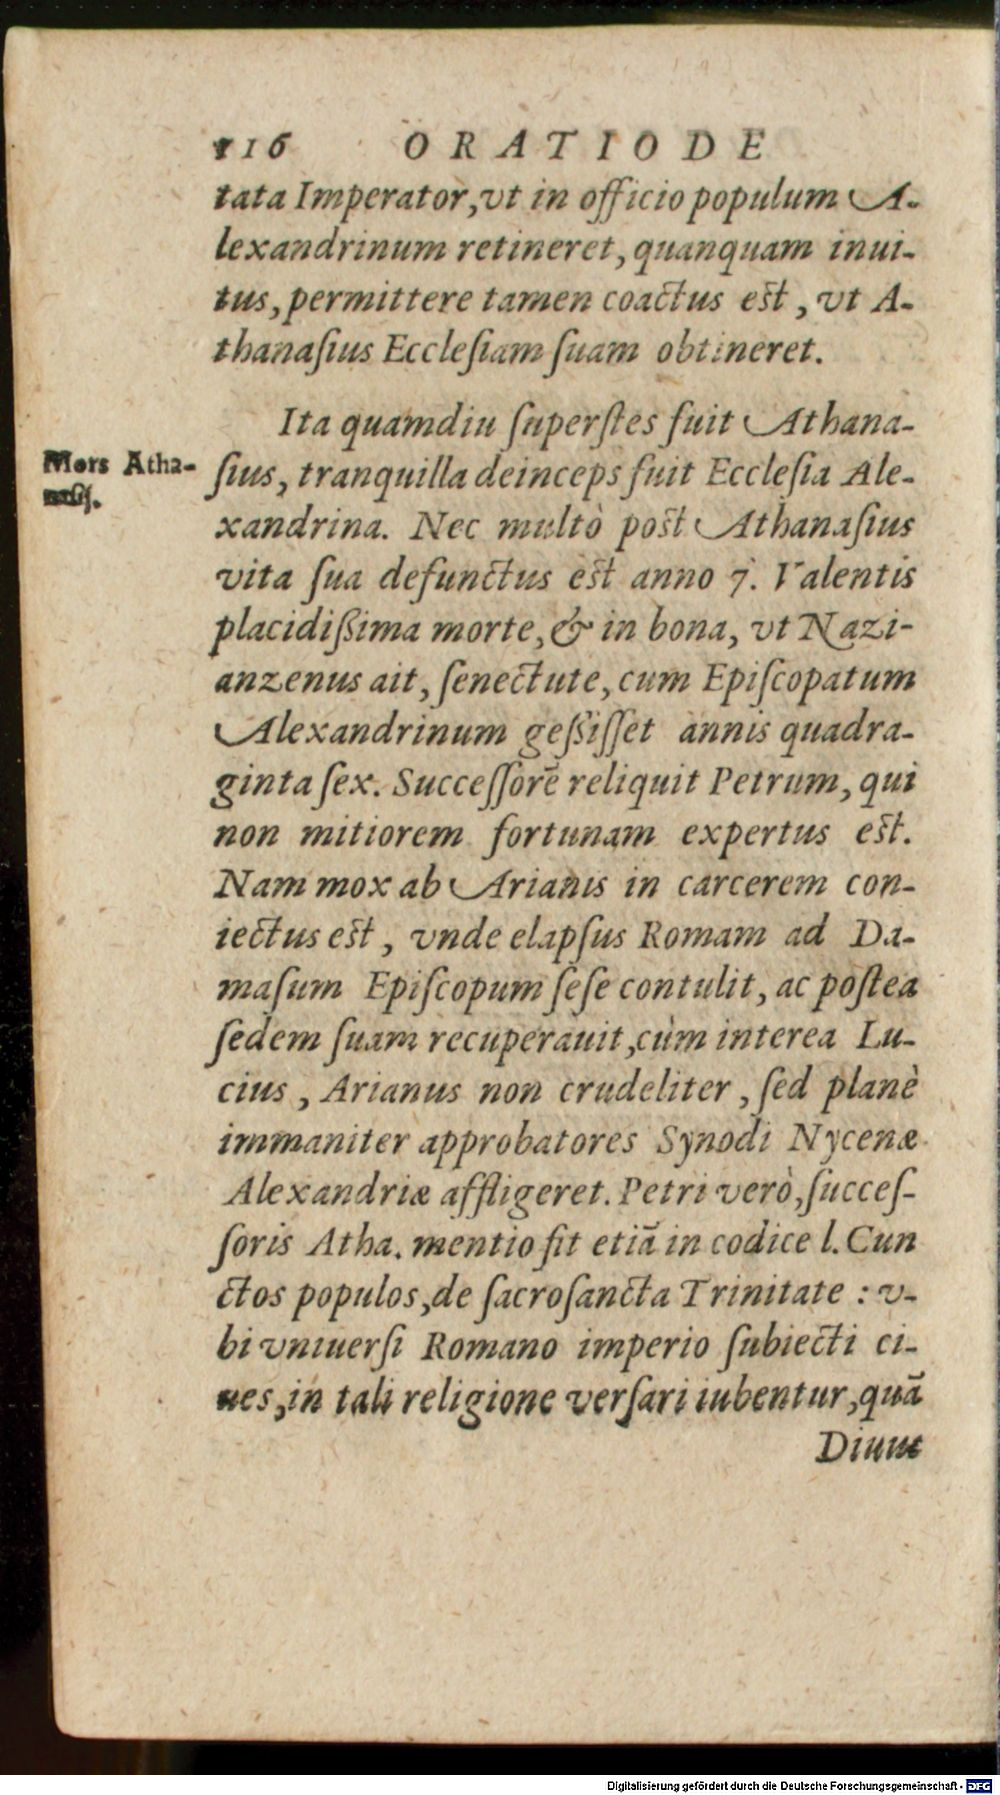 116 ORATIO DE
tata Imperator, vt in officio populum A-
lexandrinum retineret, quanquam inui-
tus, permittere tamen coactus est, vt A-
thanaſius Eccleſiam ſuam obtineret.
Ita quamdiu ſuperſtes fuit Athana-
Mors Atha-
naſij.
ſius, tranquilla deinceps fuit Eccleſia Ale-
xandrina. Nec multò post Athanaſius
vita ſua defunctus est anno 7. Valentis
placidißima morte, & in bona, vt Nazi-
anzenus ait, ſenectute, cum Epiſcopatum
Alexandrinum geßiſſet annis quadra-
ginta ſex. Succeſſorē reliquit Petrum, qui
non mitiorem fortunam expertus est.
Nam mox ab Arianis in carcerem con-
iectus est, vnde elapſus Romam ad Da-
maſum Epiſcopum ſeſe contulit, ac poſtea
ſedem ſuam recuperauit, cùm interea Lu-
cius, Arianus non crudeliter, ſed planè
immaniter approbatores Synodi Nycenæ
Alexandriæ affligeret. Petri verò, ſucceſ-
ſoris Atha. mentio fit etiā in codice l. Cun
ctos populos, de ſacroſancta Trinitate : v-
bi vniuerſi Romano imperio ſubiecti ci-
ues, in tali religione verſari iubentur, quā
Diuus
Digitalisierung gefördert durch die Deutsche Forschungsgemeinschaft - DFG